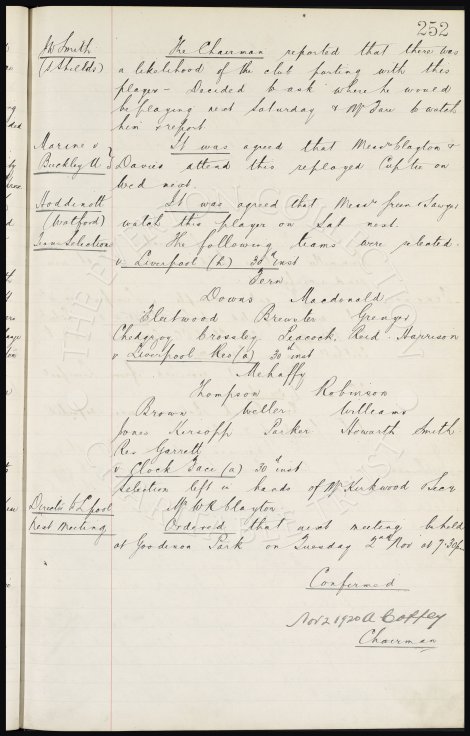 252
J W Smith The Chairman reported that there was
(S Shields) a likelihood of the club parting with this
player - Decided to ask where he would
be playing next Saturday & Mr Fare to watch
him & report
Marine v It was agreed that Messrs Clayton &
Buckley U Davies attend this replayed Cup tie on
Wed next.
Hoddinott It was agreed that Messrs Green & Sawyer
(Watford) watch this player on Sat next.
Team Selection The following teams were selected.
v Liverpool (h) 30th inst
Fern
Downs Macdonald
Fleetwood Brewster Grenyer
Chedgzoy Crossley Peacock Reid Harrison
v Liverpool Res (a) 30th inst
Mehaffy
Thompson Robinson
Brown Weller Williams
Jones Kirsopp Parker Howarth Smith
Res Garrett
v Clock Face (a) 30th inst
Selection left in hands of Mr Kirkwood & Secy
Director to L'pool Mr W R Clayton.
Next Meeting Ordered that next meeting be held
at Goodison Park on Tuesday 2nd Nov at 7.30pm
Confirmed
Nov 2 1920 A Coffey
Chairman